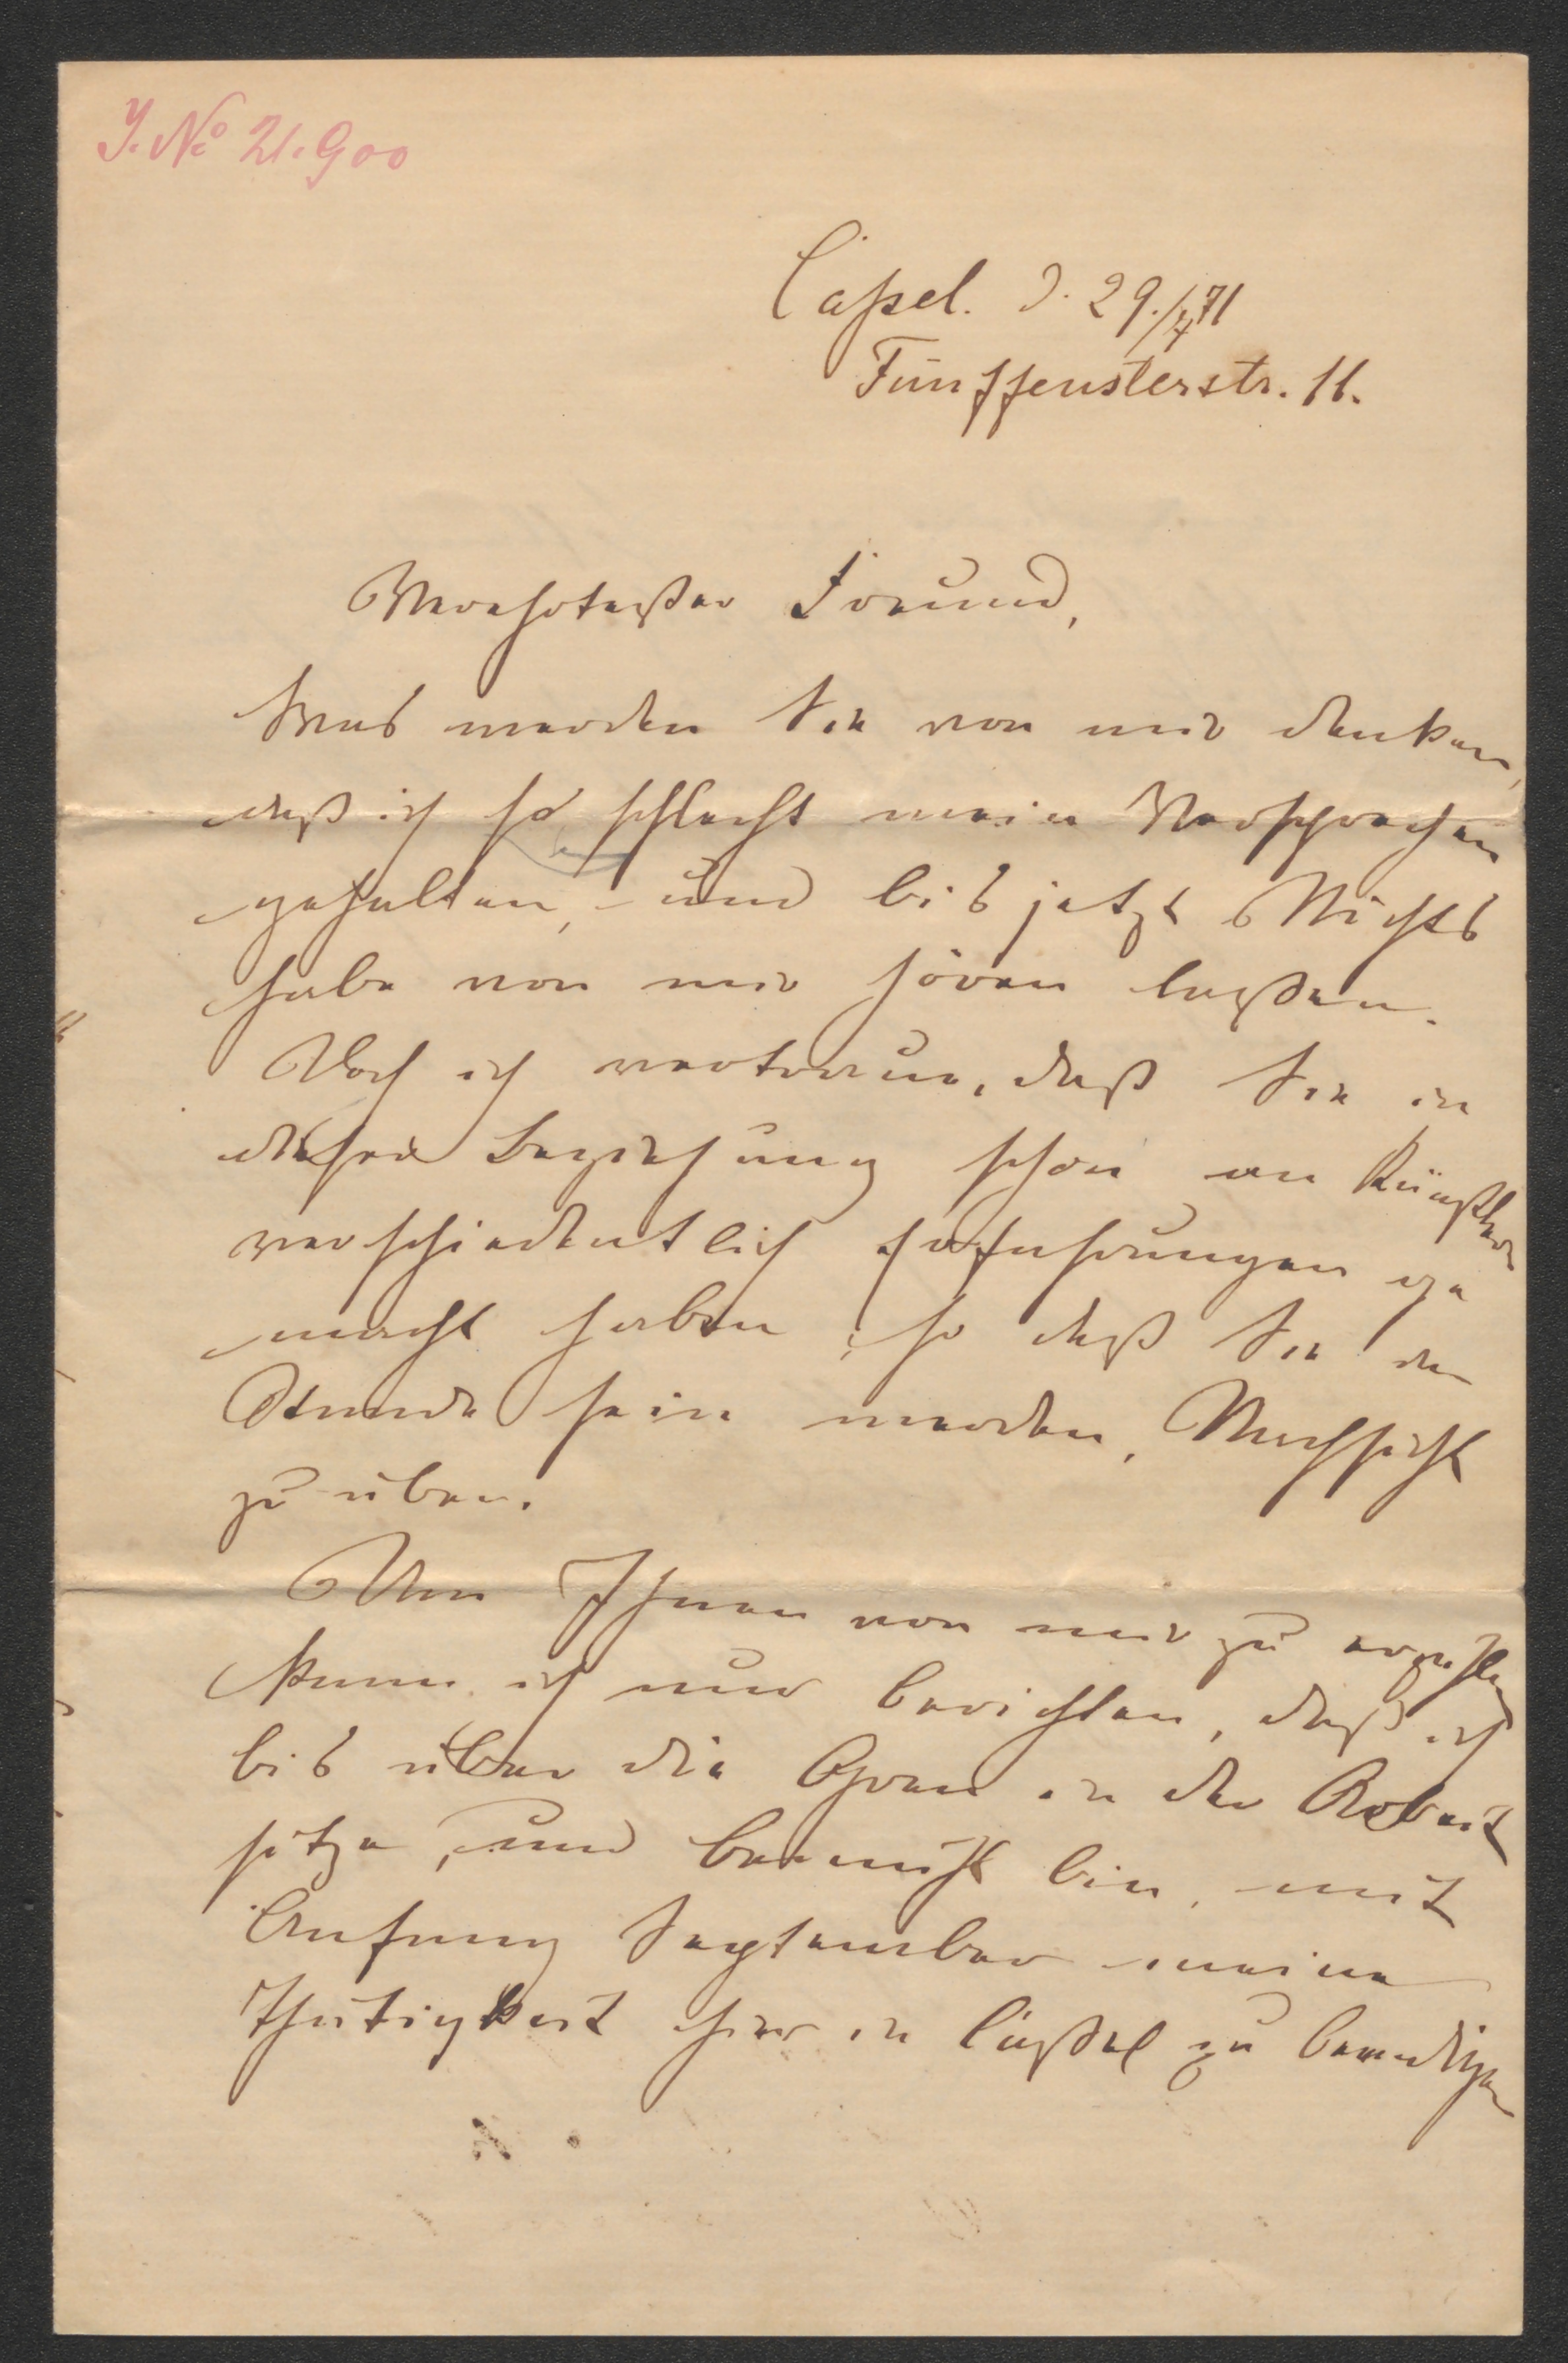 J. No 21.900
Cassel. d. 29./4 71
Fünffensterstr. 11.
Verehrtester Freund,
Was werden Sie von mir denken,
daß ich so schlecht mein Versprechen
gehalten, und bis jetzt Nichts
habe von mir hören lassen.
Doch ich vertraue, daß Sie in
dieser Beziehung schon an Künstlern
verschiedentlich Erfahrungen ge
macht haben, so daß Sie im
Stande sein werden, Nachsicht
zu üben.
Um Ihnen von mir zu erzählen
kann ich nur berichten, daß ich
bis über die Ohren in der Arbeit
sitze, und bemüht bin, mit
Anfang September meine
Thätigkeit hier in Cassel zu beendigen